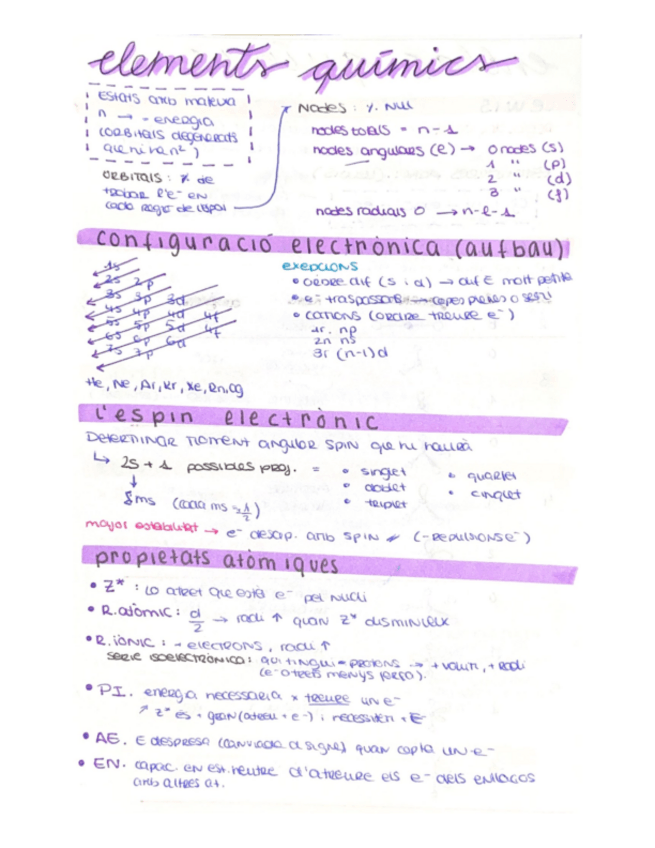 elements químics
Estats amb mateixa
n → = energia
(orbitals degenerats
que ni ha n²)
ORBITALS: % de
trobar l'e⁻ en
cada regió de l'espai
Nodes: % Nul
nodes totals = n-1
nodes angulars (ℓ) → 0 nodes (s)
1 " (p)
2 " (d)
3 " (f)
nodes radials 0 → n-ℓ-1
configuració electrònica (aufbau)
1s
2s 2p
3s 3p 3d
4s 4p 4d 4f
5s 5p 5d 4f
6s 6p 6d
7s 7p
He, Ne, Ar, Kr, Xe, Rn, Og
exepcions
• ordre dif (s i d) → dif E molt petita
• e⁻ traspassats → capes plenes o semi
• cations (ordre treure e⁻)
1r. np
2n ns
3r (n-1)d
l'espin electrònic
Determinar moment angular spin que hi haurà
↳ 2S + 1 possibles proj. =
• singlet
• doblet
• triplet
• quartet
• cinqlet
↓
ms (cada ms = ½)
major estabilitat → e⁻ desap. amb spin ≠ (-repulsions e⁻)
propietats atòmiques
• Z* : lo atret que està e⁻ pel nucli
• R. atòmic: d/2 → radi ↑ quan Z* disminueix
• R. iònic: - electrons, radi ↑
serie isoelectrònica: qui tingui = protons → + volum, + radi
(e⁻ atrets menys força).
• P.I. energia necessaria x treure un e⁻
↗ Z* és + gran (atreu + e⁻) i necessiten + E
• AE. E despresa (canviada de signe) quan capta un e⁻
• EN. capac. en est. neutre d'atreure els e⁻ dels enllaços
amb altres at.